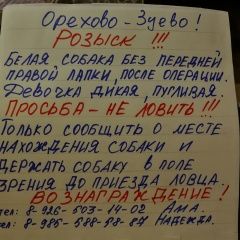 Орехово-Зуево!
РОЗЫСК !!!
БЕЛАЯ СОБАКА БЕЗ ПЕРЕДНЕЙ
ПРАВОЙ ЛАПКИ, ПОСЛЕ ОПЕРАЦИИ.
Девочка дикая, пугливая.
ПРОСЬБА - НЕ ЛОВИТЬ!!!
Только сообщить о месте
нахождения собаки и
держать собаку в поле
зрения до приезда ловца.
ВОЗНАГРАЖДЕНИЕ!
тел: 8-926-503-14-02 Алла.
тел: 8-985-588-98-87 Надежда.